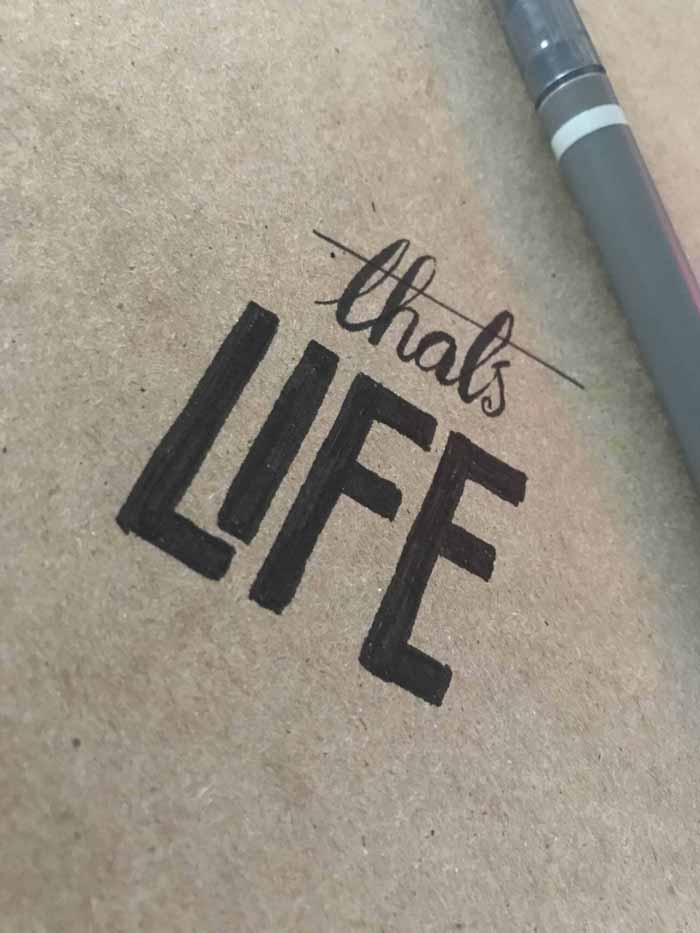 thats
LIFE